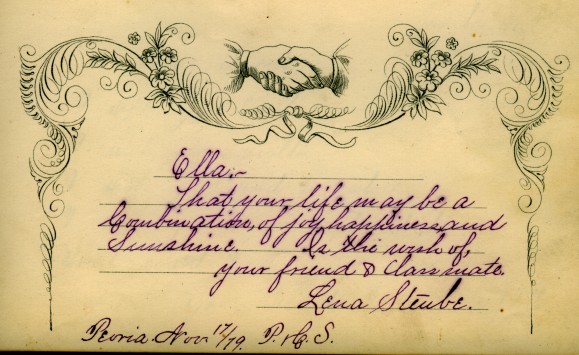 Ella:-
That your life may be a
Combination, of joy, happiness and
Sunshine. Is the wish of,
your friend & Classmate.
Lena Steube.
Peoria Nov 17/79. P. H. S.